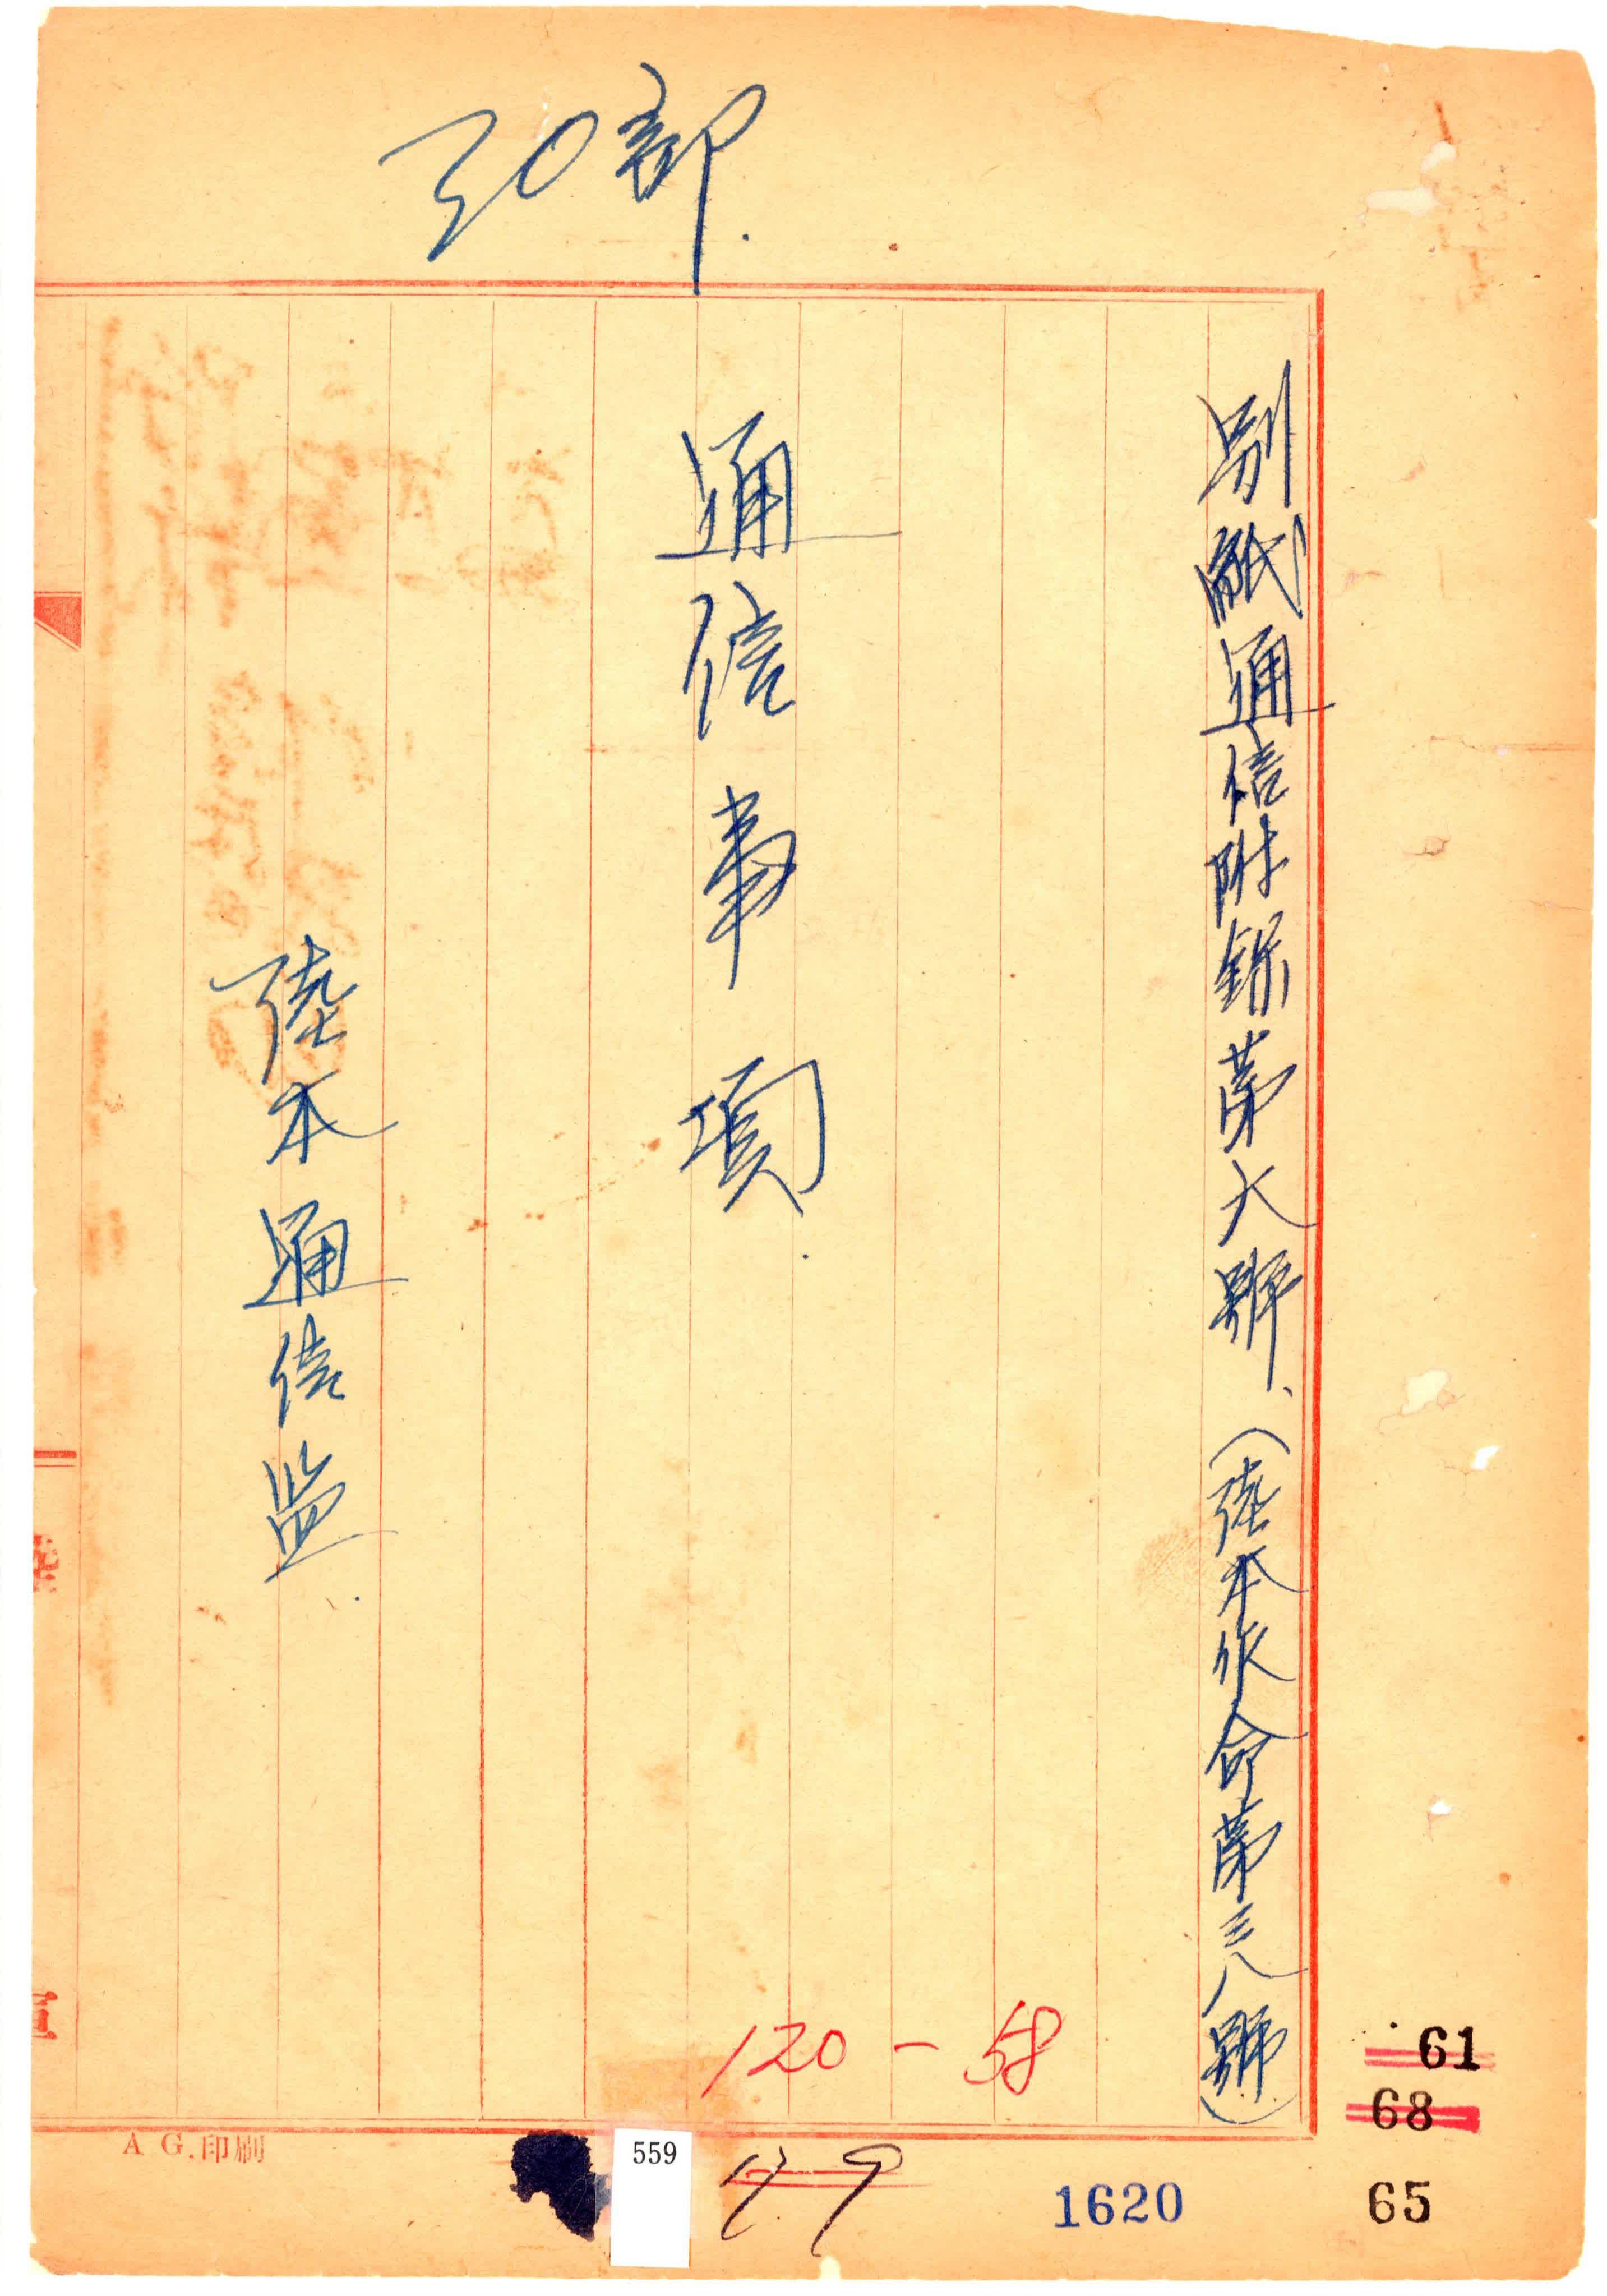 30部.
別紙通信附錄第六號、(陸本作命第三八號)
通信事項.
陸本通信監.
120-58
61
68
A G.印刷
559
79
1620
65